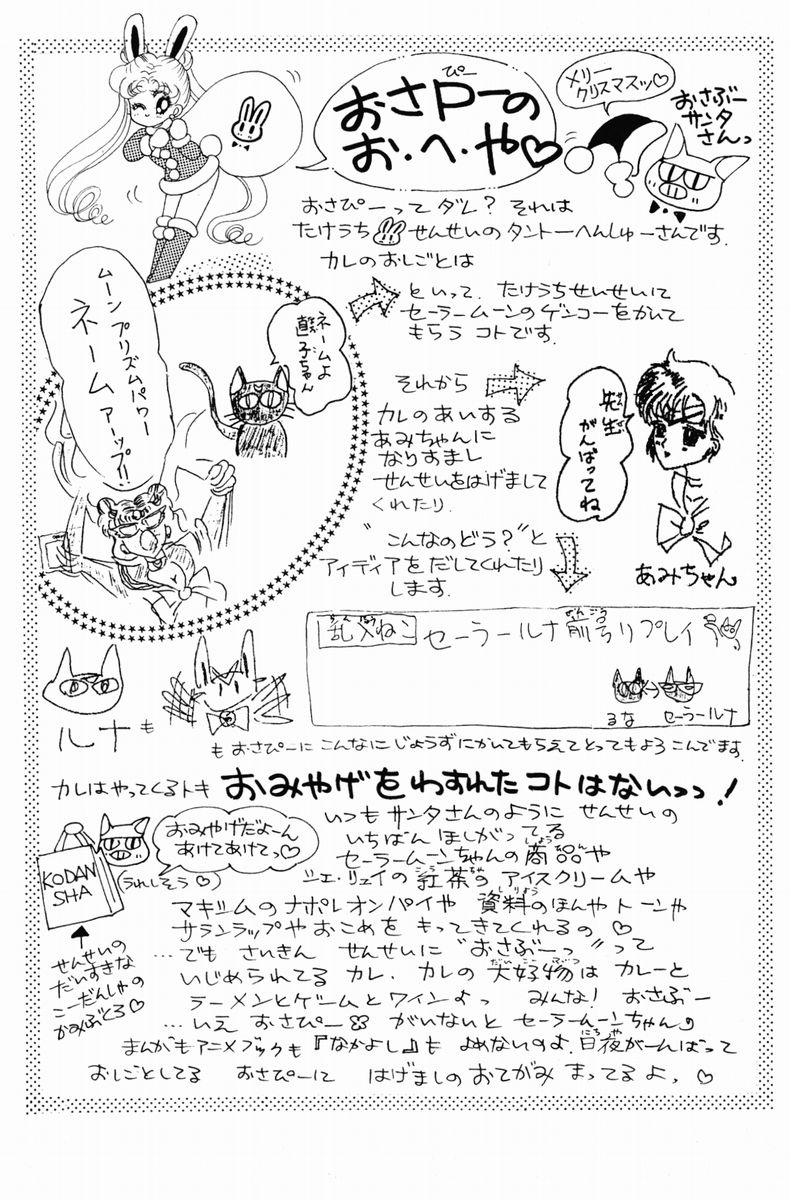 おさPーの
ぴー
お・へ・や♡
メリー
クリスマスッ♡
おさぶー
サンタ
さんっ
おさぴーってダレ？ それは
たけうち せんせいのタントーへんしゅーさんです.
カレのおしごとは
ムーンプリズムパワー
ネーム
アーップ!!
ネームよ
直子ちゃん
といって、たけうちせいせいに
セーラームーンのゲンコーをかいて
もらうコトです.
それから
カレのあいする
あみちゃんに
なりすまし
せんせいをはげまして
くれたり.
先生
がんばってね
あみちゃん
"こんなのどう？"と
アイディアをだしてくれたり
します.
乱入ねこ セーラールナ前号リプレイ
るな セーラールナ
ルナも
もおさぴーにこんなにじょうずにかいてもらえてとってもよろこんでます.
カレはやってくるトキ おみやげをわすれたコトはないっっ！
おみやげだよーん
あけてあけてっ♡
(うれしそう♡)
KODAN
SHA
せんせいの
だいすきな
こーだんしゃの
かみぶくろ♡
いつもサンタさんのように せんせいの
いちばん ほしがってる
セーラームーンちゃんの商品や
ジェ・リュイの紅茶のアイスクリームや
マキシムのナポレオンパイや 資料のほんやトーンや
サランラップやおこめをもってきてくれるの♡
…でも さいきん せんせいに"おさぶーっ"って
いじめられてるカレ. カレの大好物はカレーと
ラーメンとゲームとワインよっ みんな！ おさぶー
…いえ おさぴー がいないとセーラームーンちゃん
まんがもアニメブックも『なかよし』も よめないのよ.日夜がーんばって
おしごとしてる おさぴーに はげましのおてがみ まってるよっ♡